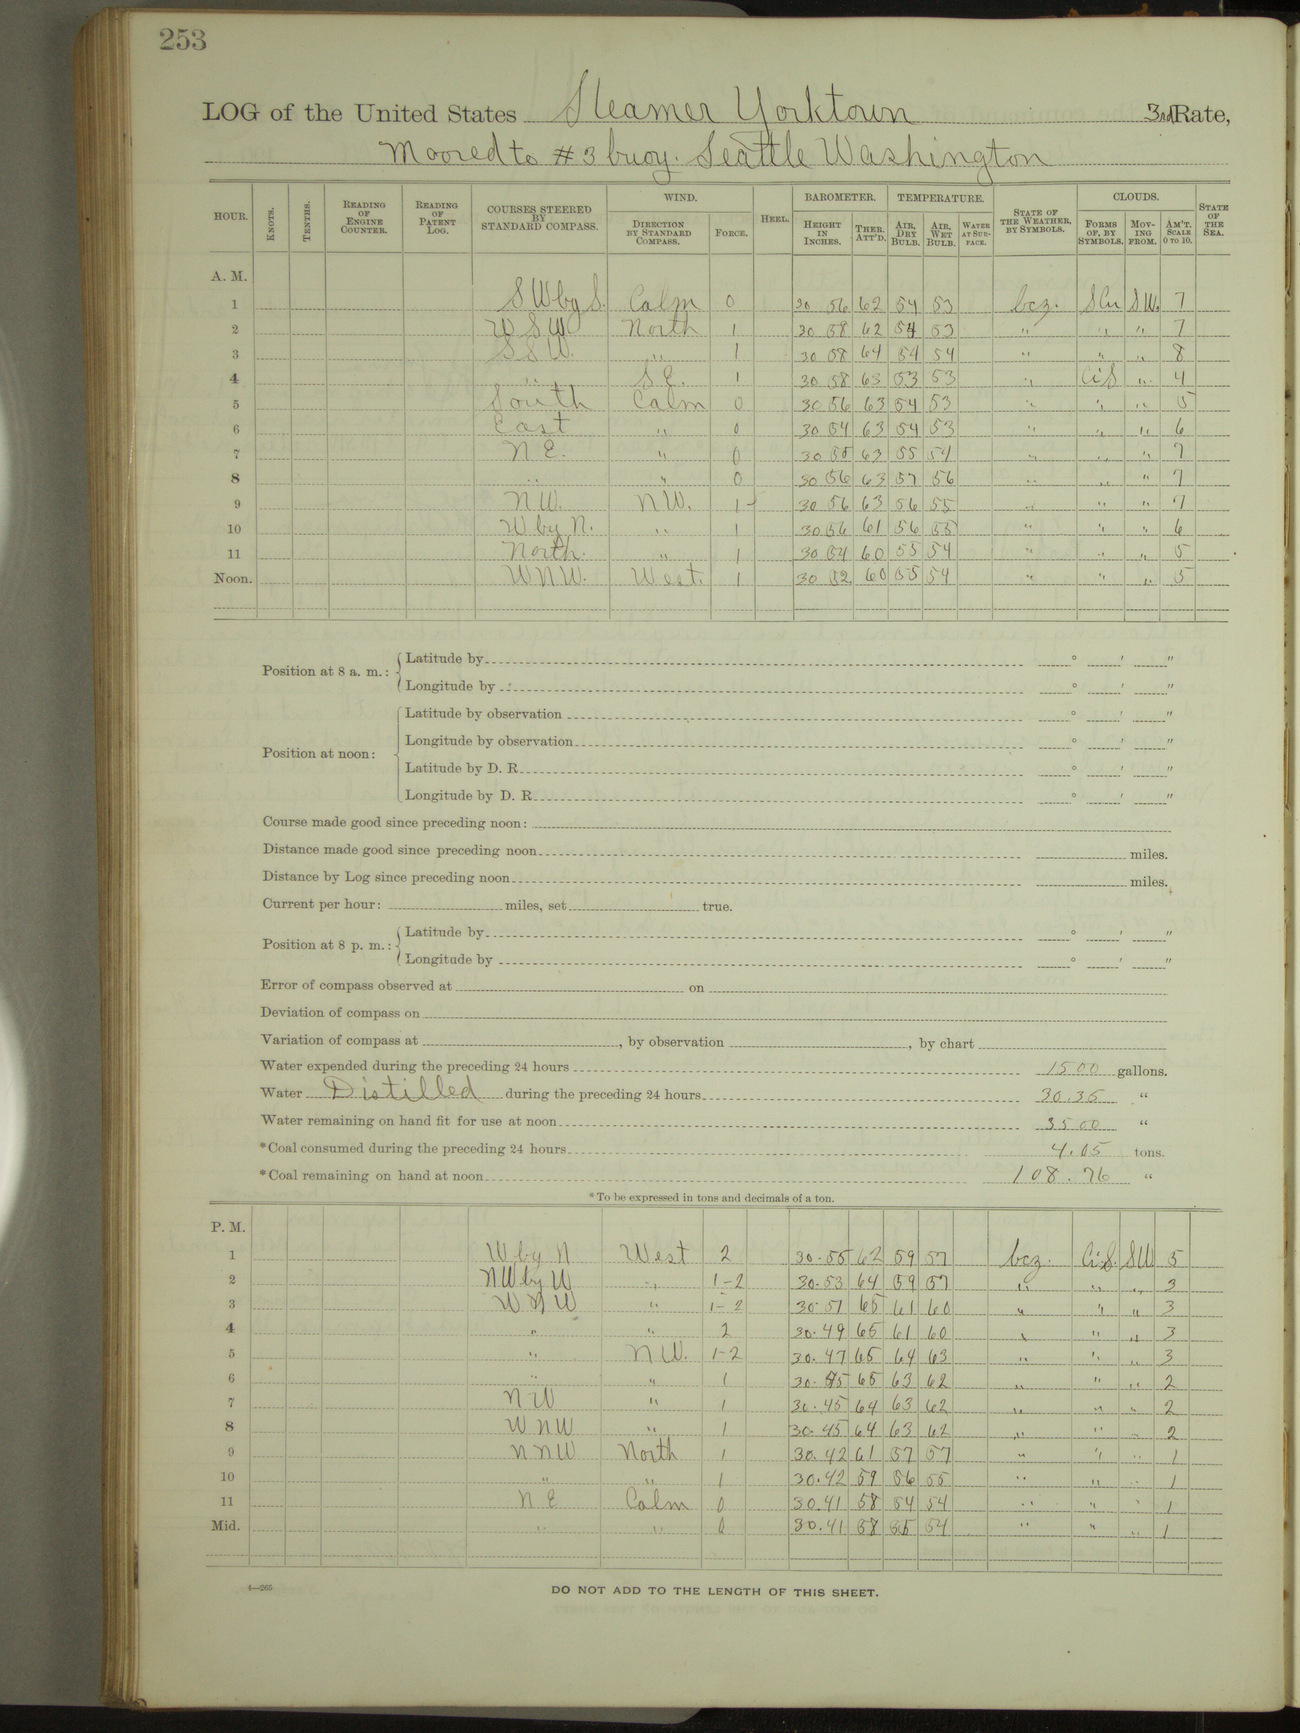 253
LOG of the United States Steamer Yorktown 3rd Rate,
Moored to #3 buoy. Seattle Washington
HOUR. KNOTS. TENTHS. READING OF ENGINE COUNTER. READING OF PATENT LOG. COURSES STEERED BY STANDARD COMPASS. WIND. DIRECTION BY STANDARD COMPASS. FORCE. HEEL. BAROMETER. HEIGHT IN INCHES. THER. ATT'D. TEMPERATURE. AIR, DRY BULB. AIR, WET BULB. WATER AT SURFACE. STATE OF THE WEATHER, BY SYMBOLS. CLOUDS. FORMS OF, BY SYMBOLS. MOVING FROM. AM'T, SCALE 0 TO 10. STATE OF THE SEA.
A. M.
1 SW by S. Calm 0 30 56 62 54 53 bcz. SCu SW. 7
2 WSW North 1 30 58 62 54 53 " " " 7
3 SSW. " 1 30 58 64 54 54 " " " 8
4 " S.E. 1 30 58 63 53 53 " CiS " 4
5 South Calm 0 30 56 63 54 53 " " " 5
6 East " 0 30 54 63 54 53 " " " 6
7 N E. " 0 30 55 63 55 54 " " " 7
8 " " 0 30 56 63 57 56 " " " 7
9 NW. NW. 1 30 56 63 56 55 " " " 7
10 W by N. " 1 30 56 61 56 55 " " " 6
11 North. " 1 30 54 60 55 54 " " " 5
Noon. WNW. West. 1 30 52 60 55 54 " " " 5
Position at 8 a. m.: Latitude by ° ' "
Longitude by ° ' "
Position at noon: Latitude by observation ° ' "
Longitude by observation ° ' "
Latitude by D. R. ° ' "
Longitude by D. R. ° ' "
Course made good since preceding noon:
Distance made good since preceding noon miles.
Distance by Log since preceding noon miles.
Current per hour: miles, set true.
Position at 8 p. m.: Latitude by ° ' "
Longitude by ° ' "
Error of compass observed at on
Deviation of compass on
Variation of compass at , by observation , by chart
Water expended during the preceding 24 hours 1500 gallons.
Water Distilled during the preceding 24 hours 30.35 "
Water remaining on hand fit for use at noon 3500 "
*Coal consumed during the preceding 24 hours 4.05 tons.
*Coal remaining on hand at noon 108.76 "
*To be expressed in tons and decimals of a ton.
P. M.
1 W by N West 2 30.55 62 59 57 bcz. CiS. SW 5
2 NW by W " 1-2 30.53 64 59 57 " " " 3
3 WNW " 1-2 30.51 65 61 60 " " " 3
4 " " 2 30.49 65 61 60 " " " 3
5 " NW. 1-2 30.47 65 64 63 " " " 3
6 " " 1 30.45 65 63 62 " " " 2
7 NW " 1 30.45 64 63 62 " " " 2
8 WNW " 1 30.45 64 63 62 " " " 2
9 NNW North 1 30.42 61 57 57 " " " 1
10 " " 1 30.42 59 56 55 " " " 1
11 N E Calm 0 30.41 58 54 54 " " " 1
Mid. " " 0 30.41 58 55 54 " " " 1
4—265
DO NOT ADD TO THE LENGTH OF THIS SHEET.